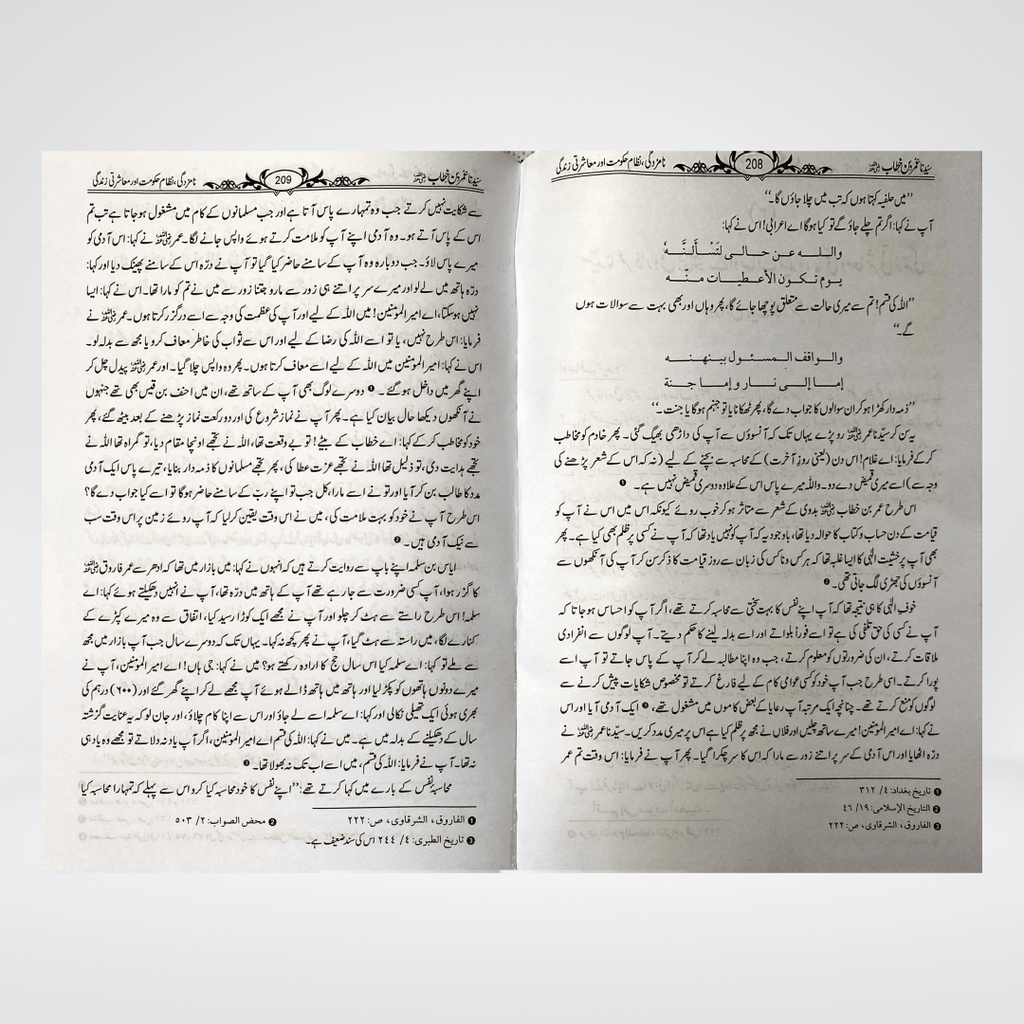 سیّدنا عمر بن خطاب رضی اللہ عنہ 208 نامزدگی، نظام حکومت اور معاشرتی زندگی
’’میں حلفیہ کہتا ہوں کہ تب میں چلا جاؤں گا۔‘‘
آپ نے کہا: اگر تم چلے جاؤ گے تو کیا ہوگا اے اعرابی! اس نے کہا:
واللـه عن حـالـی لتَسْـألَنَّـهٗ
یـوم تـکـون الأعـطیـات منّـه
’’اللہ کی قسم! تم سے میری حالت سے متعلق پوچھا جائے گا، پھر وہاں اور بھی بہت سے سوالات ہوں
گے۔‘‘
والـواقف الـمسـئـول بیـنھنـه
إمـا إلـی نـار و إمـا جنة
’’ذمہ دار کھڑا ہو کر ان سوالوں کا جواب دے گا، پھر ٹھکانا یا تو جہنم ہوگا یا جنت۔‘‘
یہ سن کر سیّدنا عمر رضی اللہ عنہ رو پڑے یہاں تک کہ آنسوؤں سے آپ کی داڑھی بھیگ گئی۔ پھر خادم کو مخاطب
کر کے فرمایا: اے غلام! اس دن (یعنی روزِ آخرت) کے محاسبہ سے بچنے کے لیے (نہ کہ اس کے شعر پڑھنے کی
وجہ سے) اسے میری قمیض دے دو۔ واللہ میرے پاس اس کے علاوہ دوسری قمیض نہیں ہے۔ ❶
اس طرح عمر بن خطاب رضی اللہ عنہ بدوی کے شعر سے متاثر ہو کر خوب روئے کیونکہ اس میں اس نے آپ کو
قیامت کے دن حساب و کتاب کا حوالہ دیا تھا، باوجود یہ کہ آپ کو نہیں یاد تھا کہ آپ نے کسی پر ظلم بھی کیا ہے۔ پھر
بھی آپ پر خشیت الٰہی کا ایسا غلبہ تھا کہ ہر کس و ناکس کی زبان سے روز قیامت کا ذکر سن کر آپ کی آنکھوں سے
آنسوؤں کی جھڑی لگ جاتی تھی۔ ❷
خوف الٰہی کا ہی نتیجہ تھا کہ آپ اپنے نفس کا بہت سختی سے محاسبہ کرتے تھے، اگر آپ کو احساس ہو جاتا کہ
آپ نے کسی کی حق تلفی کی ہے تو اسے فوراً بلواتے اور اسے بدلہ لینے کا حکم دیتے۔ آپ لوگوں سے انفرادی
ملاقات کرتے، ان کی ضرورتوں کو معلوم کرتے، جب وہ اپنا مطالبہ لے کر آپ کے پاس جاتے تو آپ اسے
پورا کرتے۔ اسی طرح جب آپ خود کو کسی عوامی کام کے لیے فارغ کرتے تو مخصوص شکایات پیش کرنے سے
لوگوں کو منع کرتے تھے۔ چنانچہ ایک مرتبہ آپ رعایا کے بعض کاموں میں مشغول تھے، ❸ ایک آدمی آیا اور اس
نے کہا: اے امیر المومنین! میرے ساتھ چلیں اور فلاں نے مجھ پر ظلم کیا ہے اس پر میری مدد کریں۔ سیّدنا عمر رضی اللہ عنہ نے
درّہ اٹھایا اور اس آدمی کے سر پر اتنے زور سے مارا کہ اس کا سر چکرا گیا۔ پھر آپ نے فرمایا: اس وقت تم عمر
❶ تاریخ بغداد: ٤/ ٣١٢
❷ التاریخ الإسلامی: ١٩/ ٤٦
❸ الفاروق، الشرقاوی، ص: ٢٢٢
سیّدنا عمر بن خطاب رضی اللہ عنہ 209 نامزدگی، نظام حکومت اور معاشرتی زندگی
سے شکایت نہیں کرتے جب وہ تمہارے پاس آتا ہے اور جب مسلمانوں کے کام میں مشغول ہو جاتا ہے تب تم
اس کے پاس آتے ہو۔ وہ آدمی اپنے آپ کو ملامت کرتے ہوئے واپس جانے لگا۔ عمر رضی اللہ عنہ نے کہا: اس آدمی کو
میرے پاس لاؤ۔ جب دوبارہ وہ آپ کے سامنے حاضر کیا گیا تو آپ نے درّہ اس کے سامنے پھینک دیا اور کہا:
درّہ ہاتھ میں لے لو اور میرے سر پر اتنے ہی زور سے مارو جتنا زور سے میں نے تم کو مارا تھا۔ اس نے کہا: ایسا
نہیں ہوسکتا، اے امیر المومنین! میں اللہ کے لیے اور آپ کی عظمت کی وجہ سے اسے درگزر کرتا ہوں۔ عمر رضی اللہ عنہ نے
فرمایا: اس طرح نہیں، یا تو اسے اللہ کی رضا کے لیے اور اس سے ثواب کی خاطر معاف کر دو یا مجھ سے بدلہ لو۔
اس نے کہا: امیر المومنین میں اللہ کے لیے اسے معاف کرتا ہوں۔ پھر وہ واپس چلا گیا۔ اور عمر رضی اللہ عنہ پیدل چل کر
اپنے گھر میں داخل ہو گئے۔ ❶ دوسرے لوگ بھی آپ کے ساتھ تھے، ان میں احنف بن قیس بھی تھے جنہوں
نے آنکھوں دیکھا حال بیان کیا ہے۔ پھر آپ نے نماز شروع کی اور دو رکعت نماز پڑھنے کے بعد بیٹھ گئے، پھر
خود کو مخاطب کر کے کہا: اے خطاب کے بیٹے! تو بے وقعت تھا، اللہ نے تجھے اونچا مقام دیا، تو گمراہ تھا اللہ نے
تجھے ہدایت دی، تو ذلیل تھا اللہ نے تجھے عزت عطا کی، پھر تجھے مسلمانوں کا ذمہ دار بنایا، تیرے پاس ایک آدمی
مدد کا طالب بن کر آیا اور تو نے اسے مارا، کل جب تو اپنے ربّ کے سامنے حاضر ہوگا تو اسے کیا جواب دے گا؟
اس طرح آپ نے خود کو بہت ملامت کی، میں نے اس وقت یقین کر لیا کہ آپ روئے زمین پر اس وقت سب
سے نیک آدمی ہیں۔ ❷
ایاس بن سلمہ اپنے باپ سے روایت کرتے ہیں کہ انہوں نے کہا: میں بازار میں تھا کہ ادھر سے عمر فاروق رضی اللہ عنہ
کا گزر ہوا، آپ کسی ضرورت سے جا رہے تھے آپ کے ہاتھ میں درّہ تھا، آپ نے انہیں دھکیلتے ہوئے کہا: اے
سلمہ! اس طرح راستے سے ہٹ کر چلو اور آپ نے مجھے ایک کوڑا رسید کیا، اتفاق سے وہ میرے کپڑے کے
کنارے لگا، میں راستہ سے ہٹ گیا، آپ نے پھر کچھ نہ کہا۔ یہاں تک کہ دوسرے سال جب آپ بازار میں مجھ
سے ملے تو کہا: اے سلمہ کیا اس سال حج کا ارادہ رکھتے ہو؟ میں نے کہا: جی ہاں! اے امیر المومنین، آپ نے
میرے دونوں ہاتھوں کو پکڑ لیا اور ہاتھ میں ہاتھ ڈالے ہوئے آپ مجھے لے کر اپنے گھر گئے اور (٦٠٠) درہم کی
بھری ہوئی ایک تھیلی نکالی اور کہا: اے سلمہ اسے لے جاؤ اور اس سے اپنا کام چلاؤ، اور جان لو کہ یہ عنایت گزشتہ
سال کے دھکیلنے کے بدلہ میں ہے۔ میں نے کہا: اللہ کی قسم اے امیر المومنین، اگر آپ یاد نہ دلاتے تو مجھے وہ یاد ہی
نہ تھا۔ آپ نے فرمایا: اللہ کی قسم، میں اسے اب تک نہ بھولا تھا۔ ❸
محاسبہ نفس کے بارے میں کہا کرتے تھے: ’’اپنے نفس کا خود محاسبہ کیا کرو اس سے پہلے کہ تمہارا محاسبہ کیا
❶ الفاروق، الشرقاوی، ص: ٢٢٢ ❷ محض الصواب: ٢/ ٥٠٣
❸ تاریخ الطبری: ٤/ ٢٤٤ اس کی سند ضعیف ہے۔